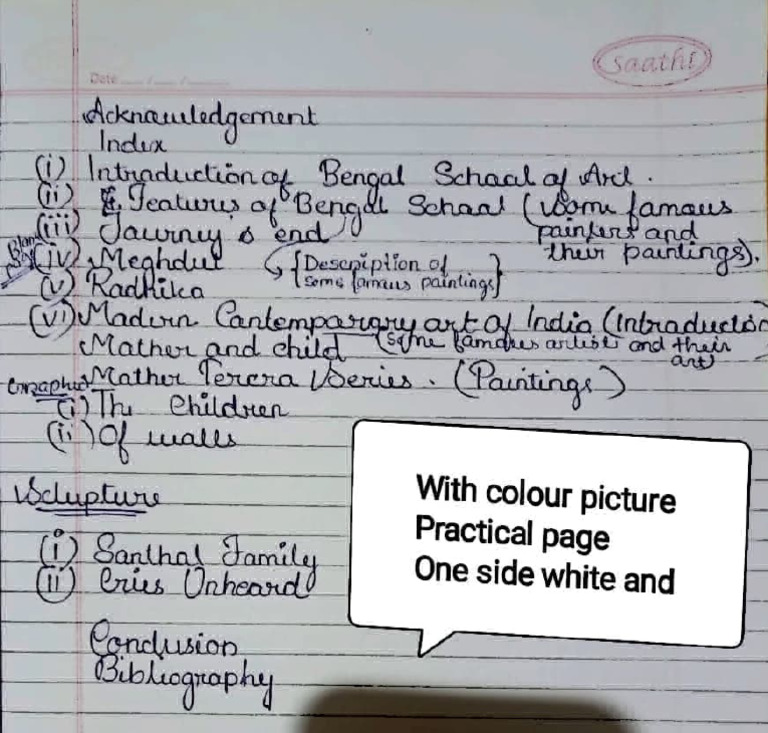 saathi
Date ..../..../....
Acknowledgement
Index
(i) Introduction of Bengal School of Art.
(ii) Features of Bengal School (Some famous
painters and
their paintings).
(iii) Journey's end
(iv) Meghdut
{Description of
some famous paintings}
(v) Radhika
(vi) Modern Contemporary art of India (Introduction
(some famous artists and their
art)
Mother and child
Mother Terera Series. (Paintings)
Graphics
(i) The Children
(ii) Of walls
Sclupture
(i) Santhal Family
(ii) Cries Unheard
Conclusion
Bibliography
With colour picture
Practical page
One side white and